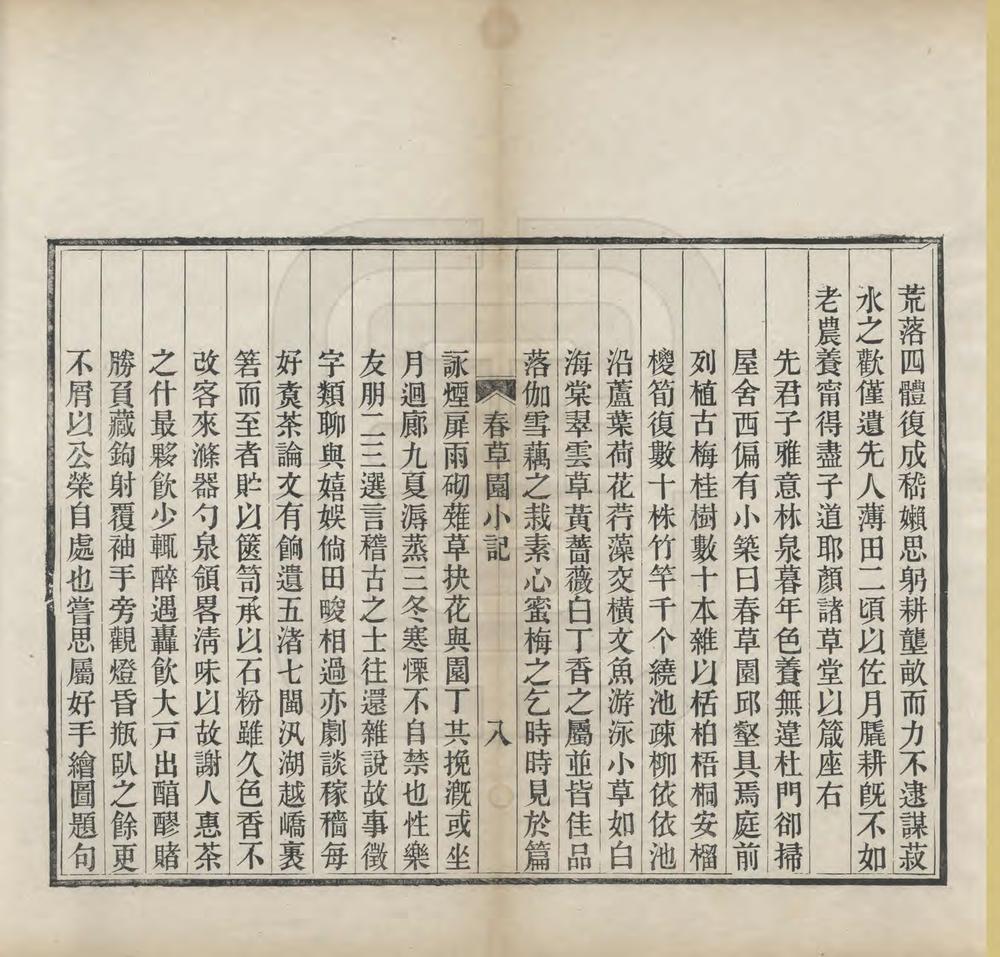 荒落四體復成嵇嬾思躬耕壟畝而力不逮謀菽
水之歡僅遺先人薄田二頃以佐月臈耕旣不如
老農養甯得盡子道耶顏諸草堂以箴座右
先君子雅意林泉暮年色養無違杜門卻掃
屋舍西偏有小築曰春草園邱壑具焉庭前
列植古梅桂樹數十本雜以栝柏梧桐安榴
椶筍復數十株竹竿千个繞池疎柳依依池
沿蘆葉荷花荇藻交橫文魚游泳小草如白
海棠翠雲草黃薔薇白丁香之屬並皆佳品
落伽雪藕之栽素心蜜梅之乞時時見於篇
春草園小記
八
詠煙扉雨砌薙草抉花與園丁共挽漑或坐
月迴廊九夏溽蒸三冬寒慄不自禁也性樂
友朋二三選言稽古之士往還雜說故事徵
字類聊與嬉娛倘田畯相過亦劇談稼穡每
好煑茶論文有餉遺五渚七閩汎湖越嶠裹
箬而至者貯以篋笥承以石粉雖久色香不
改客來滌器勺泉領畧淸味以故謝人惠茶
之什最夥飮少輒醉遇轟飮大戸出醅醪賭
勝負藏鉤射覆袖手旁觀燈昏瓶臥之餘更
不屑以公榮自處也嘗思屬好手繪圖題句